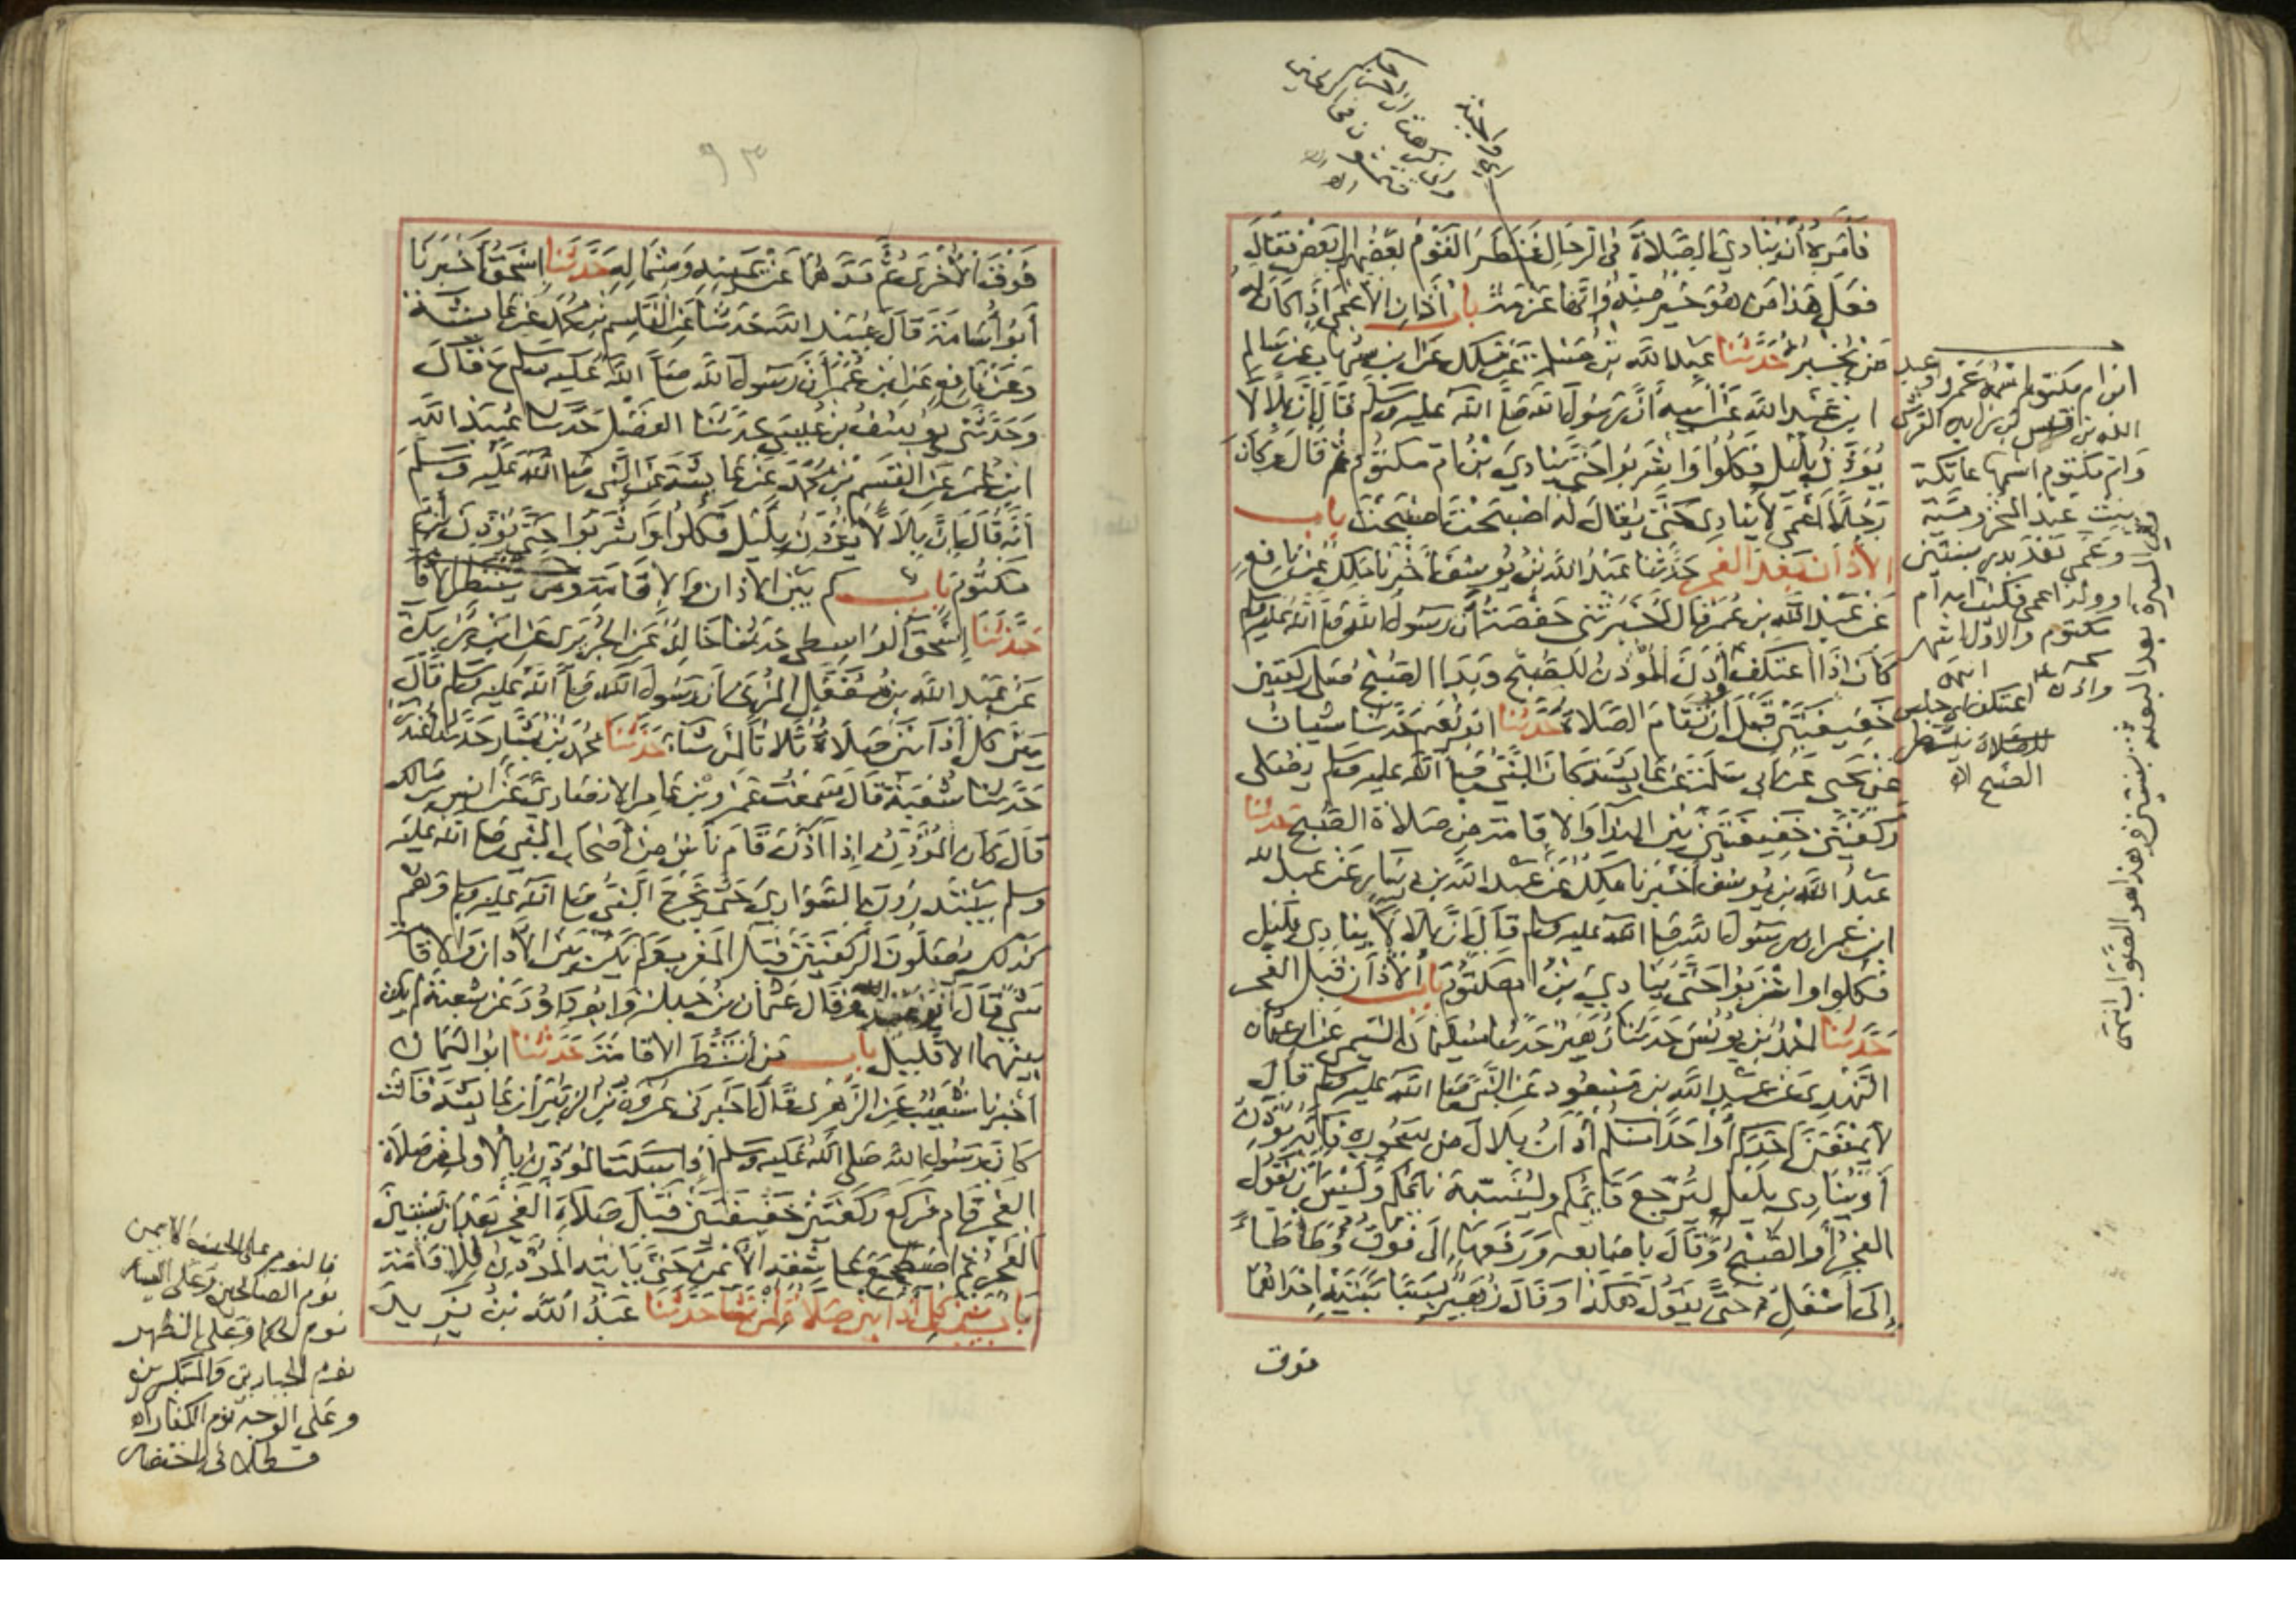 فأمره أن ينادي الصلاة في الرحال فنظر القوم بعضهم إلى بعض فقال
فعل هذا من هو خير منه وإنها عزمة باب أذان الأعمى إذا كان له
من يخبره حدثنا عبد الله بن مسلمة عن مالك عن ابن شهاب عن سالم
ابن عبد الله عن أبيه أن رسول الله صلى الله عليه وسلم قال إن بلالا
يؤذن بليل فكلوا واشربوا حتى ينادي بن أم مكتوم ثم قال وكان
رجلا أعمى لا ينادي حتى يقال له أصبحت أصبحت باب
الأذان بعد الفجر حدثنا عبد الله بن يوسف أخبرنا مالك عن نافع
عن عبد الله بن عمر قال أخبرتني حفصة أن رسول الله صلى الله عليه وسلم
كان إذا اعتكف أذن المؤذن للصبح وبدا الصبح صلى ركعتين
خفيفتين قبل أن تقام الصلاة حدثنا أبو نعيم حدثنا شيبان
عن يحيى عن أبي سلمة عن عايشة كان النبي صلى الله عليه وسلم يصلي
ركعتين خفيفتين بين النداء والإقامة من صلاة الصبح حدثنا
عبد الله بن يوسف أخبرنا مالك عن عبد الله بن دينار عن عبد الله
ابن عمر أن رسول الله صلى الله عليه وسلم قال إن بلالا ينادي بليل
فكلوا واشربوا حتى ينادي بن أم مكتوم باب الأذان قبل الفجر
حدثنا أحمد بن يونس حدثنا زهير حدثنا سليمان التيمي عن أبي عثمان
النهدي عن عبد الله بن مسعود عن النبي صلى الله عليه وسلم قال
لا يمنعن أحدكم أو أحدا منكم أذان بلال من سحوره فإنه يؤذن
أو ينادي بليل ليرجع قايمكم ولينبه نائمكم وليس أن يقول
الفجر أو الصبح وقال بأصابعه ورفعها إلى فوق وطأطأ
إلى أسفل حتى يقول هكذا وقال زهير بسبابتيه إحداهما
فوق
أي واجبة
ابن أم مكتوم اسمه عمرو وعبد
الله بن قيس بن زايده القرشي
وأم مكتوم اسمها عاتكة
بنت عبد المخزومية
وعمي بعد بدر بسنتين
أو ولد أعمى فكنيت أمه أم
مكتوم والأول أشهر
انتهى
اعتكف أي جلس
للصلاة ينتظر
الصبح اه
٩٣
فوق الأخرى ثم مدهما عن يمينه وشماله حدثنا إسحق أخبرنا
أبو أسامة قال عبيد الله حدثنا عن القاسم بن محمد عن عائشة
وعن نافع عن ابن عمر أن رسول الله صلى الله عليه وسلم ح قال
وحدثني يوسف بن عيسى حدثنا الفضل حدثنا عبيد الله
ابن عمر عن القسم بن محمد عن عايشة عن النبي صلى الله عليه وسلم
أنه قال إن بلالا يؤذن بليل فكلوا واشربوا حتى يؤذن ابن أم
مكتوم باب كم بين الأذان والإقامة ومن ينتظر الإقا
حدثنا إسحق الواسطي حدثنا خالد عن الجريري عن ابن بريدة
عن عبد الله بن مغفل المزني أن رسول الله صلى الله عليه وسلم قال
بين كل أذانين صلاة ثلاثا لمن شاء حدثنا محمد بن بشار حدثنا غندر
حدثنا شعبة قال سمعت عمرو بن عامر الأنصاري عن أنس بن مالك
قال كان المؤذن إذا أذن قام ناس من أصحاب النبي صلى الله عليه
وسلم يبتدرون السواري حتى يخرج النبي صلى الله عليه وسلم وهم
كذلك يصلون الركعتين قبل المغرب ولم يكن بين الأذان والإقا
شيء قال أبو عبد الله وقال عثمان بن جبلة وأبو داود عن شعبة لم يكن
بينهما إلا قليل باب من انتظر الإقامة حدثنا أبو اليمان
أخبرنا شعيب عن الزهري قال أخبرني عروة بن الزبير أن عايشة قالت
كان رسول الله صلى الله عليه وسلم إذا سكت المؤذن بالأولى من صلاة
الفجر قام فركع ركعتين خفيفتين قبل صلاة الفجر بعد أن يستبين
الفجر ثم اضطجع على شقه الأيمن حتى يأتيه المؤذن للإقامة
باب بين كل أذانين صلاة لمن شا حدثنا عبد الله بن يزيد
فالنوم على الجنب الأيمن
نوم الصالحين وعلى اليسار
نوم الحكما وعلى الظهر
نوم الجبارين والمتكبرين
وعلى الوجه نوم الكفار اه